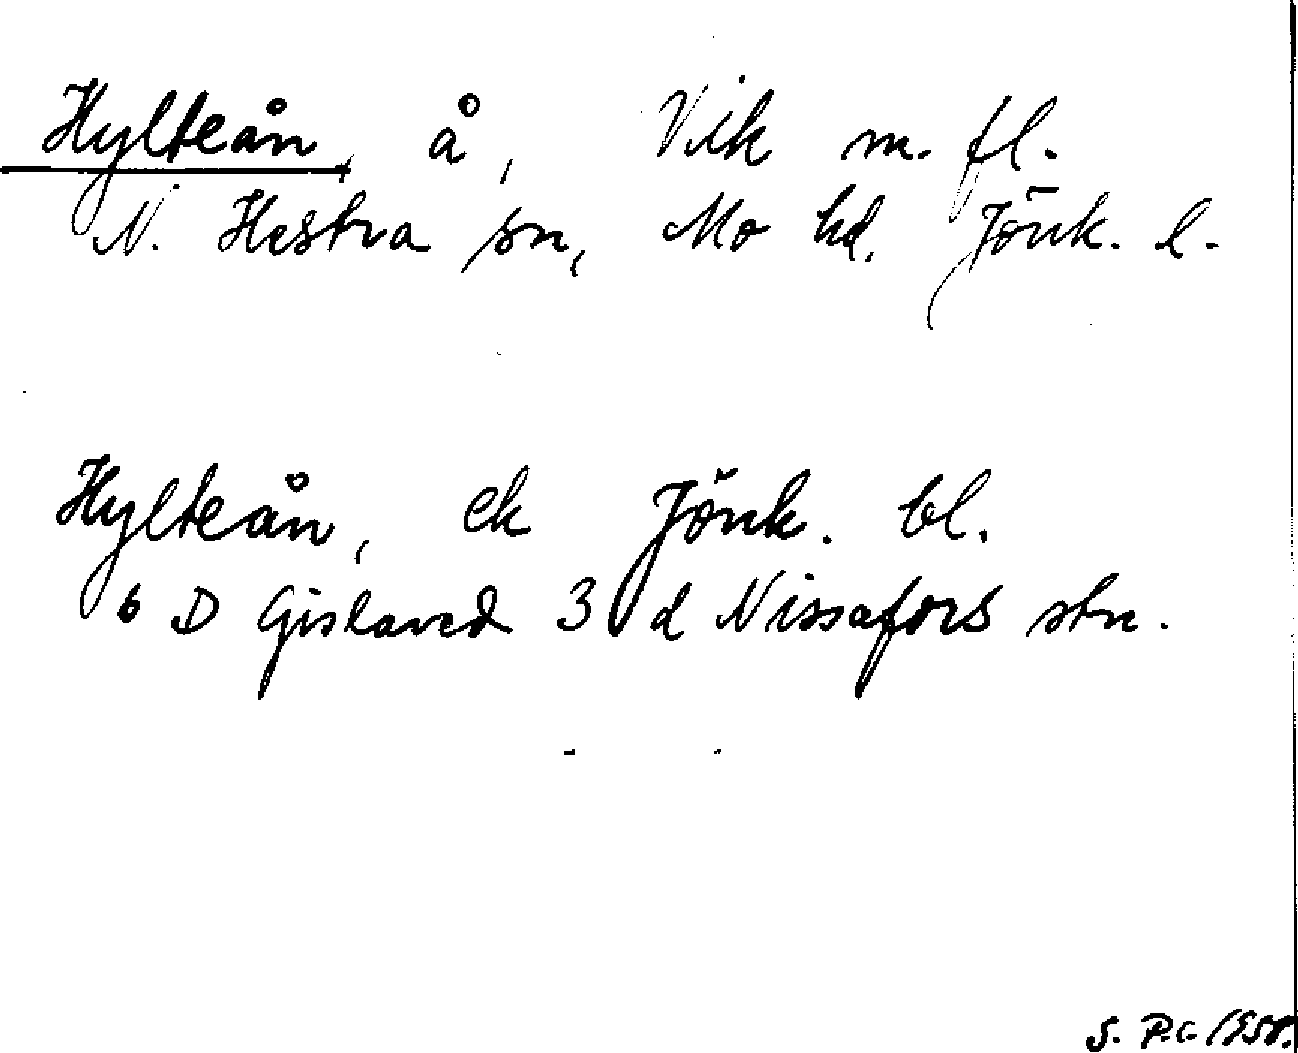 Hylteån, å, Vik m. fl.
N. Hestra sn, Mo hd. Jönk. l.
Hylteån, ek Jönk. bl.
6 D Gislaved 3 d Nissafors stn.
S. P.C. 1958.